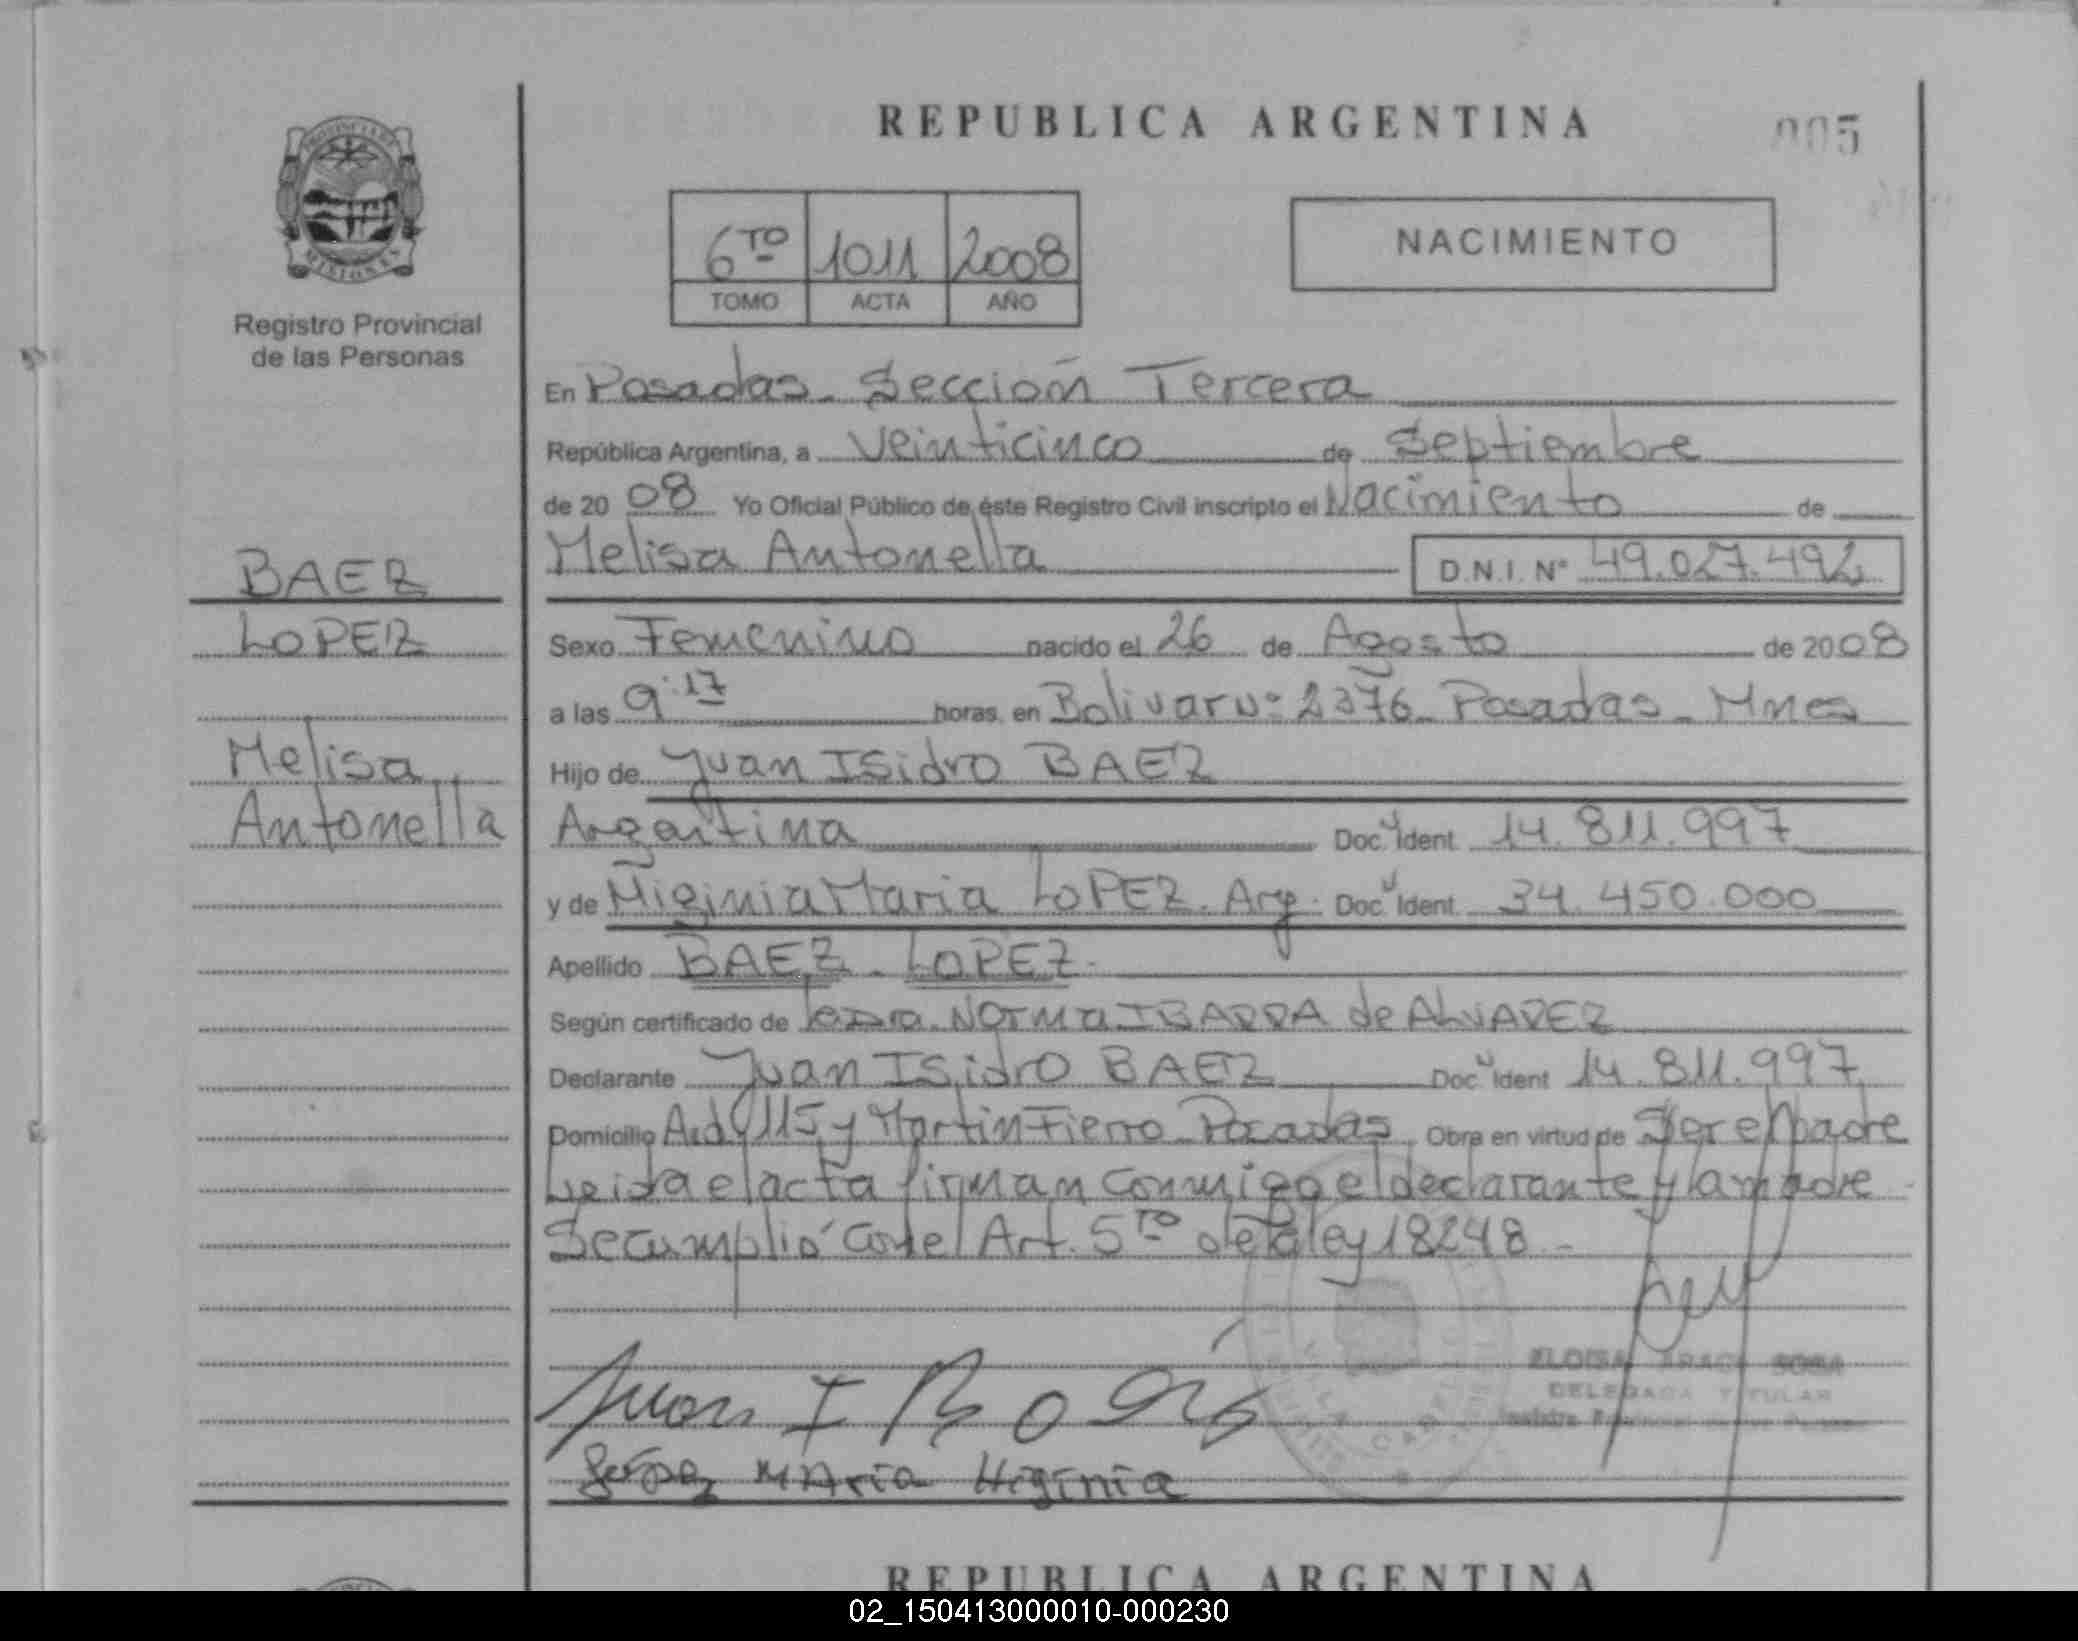 REPUBLICA ARGENTINA
005
6TO 1011 2008
TOMO ACTA AÑO
NACIMIENTO
PROVINCIA DE
MISIONES
Registro Provincial
de las Personas
En Posadas. Sección Tercera
República Argentina, a Veinticinco de Septiembre
de 2008 Yo Oficial Público de éste Registro Civil inscripto el Nacimiento de
Melisa Antonella D.N.I. Nº 49.027.492
BAEZ
LOPEZ
Melisa
Antonella
Sexo Femenino nacido el 26 de Agosto de 2008
a las 9:17 horas. en Bolivar Nº 2376 Posadas - Mnes
Hijo de Juan ISidro BAEZ
Argentina Doc. Ident. 14.811.997
y de Higinia Maria LOPEZ. Arg. Doc. Ident. 34.450.000
Apellido BAEZ - LOPEZ.
Según certificado de Norma IBARRA de ALVAREZ
Declarante Juan ISidro BAEZ Doc. Ident 14.811.997
Domicilio 115 y Martin Fierro Posadas Obra en virtud de Ser el Padre
Leida el acta firman conmigo el declarante y la madre
Se cumplió con el Art. 5TO de la ley 18248 -
Juan I
ELOISA ARACI SOSA
DELEGADA TITULAR
Registro Provincial de las Personas
Lopez Maria Higinia
REPUBLICA ARGENTINA
02_150413000010-000230